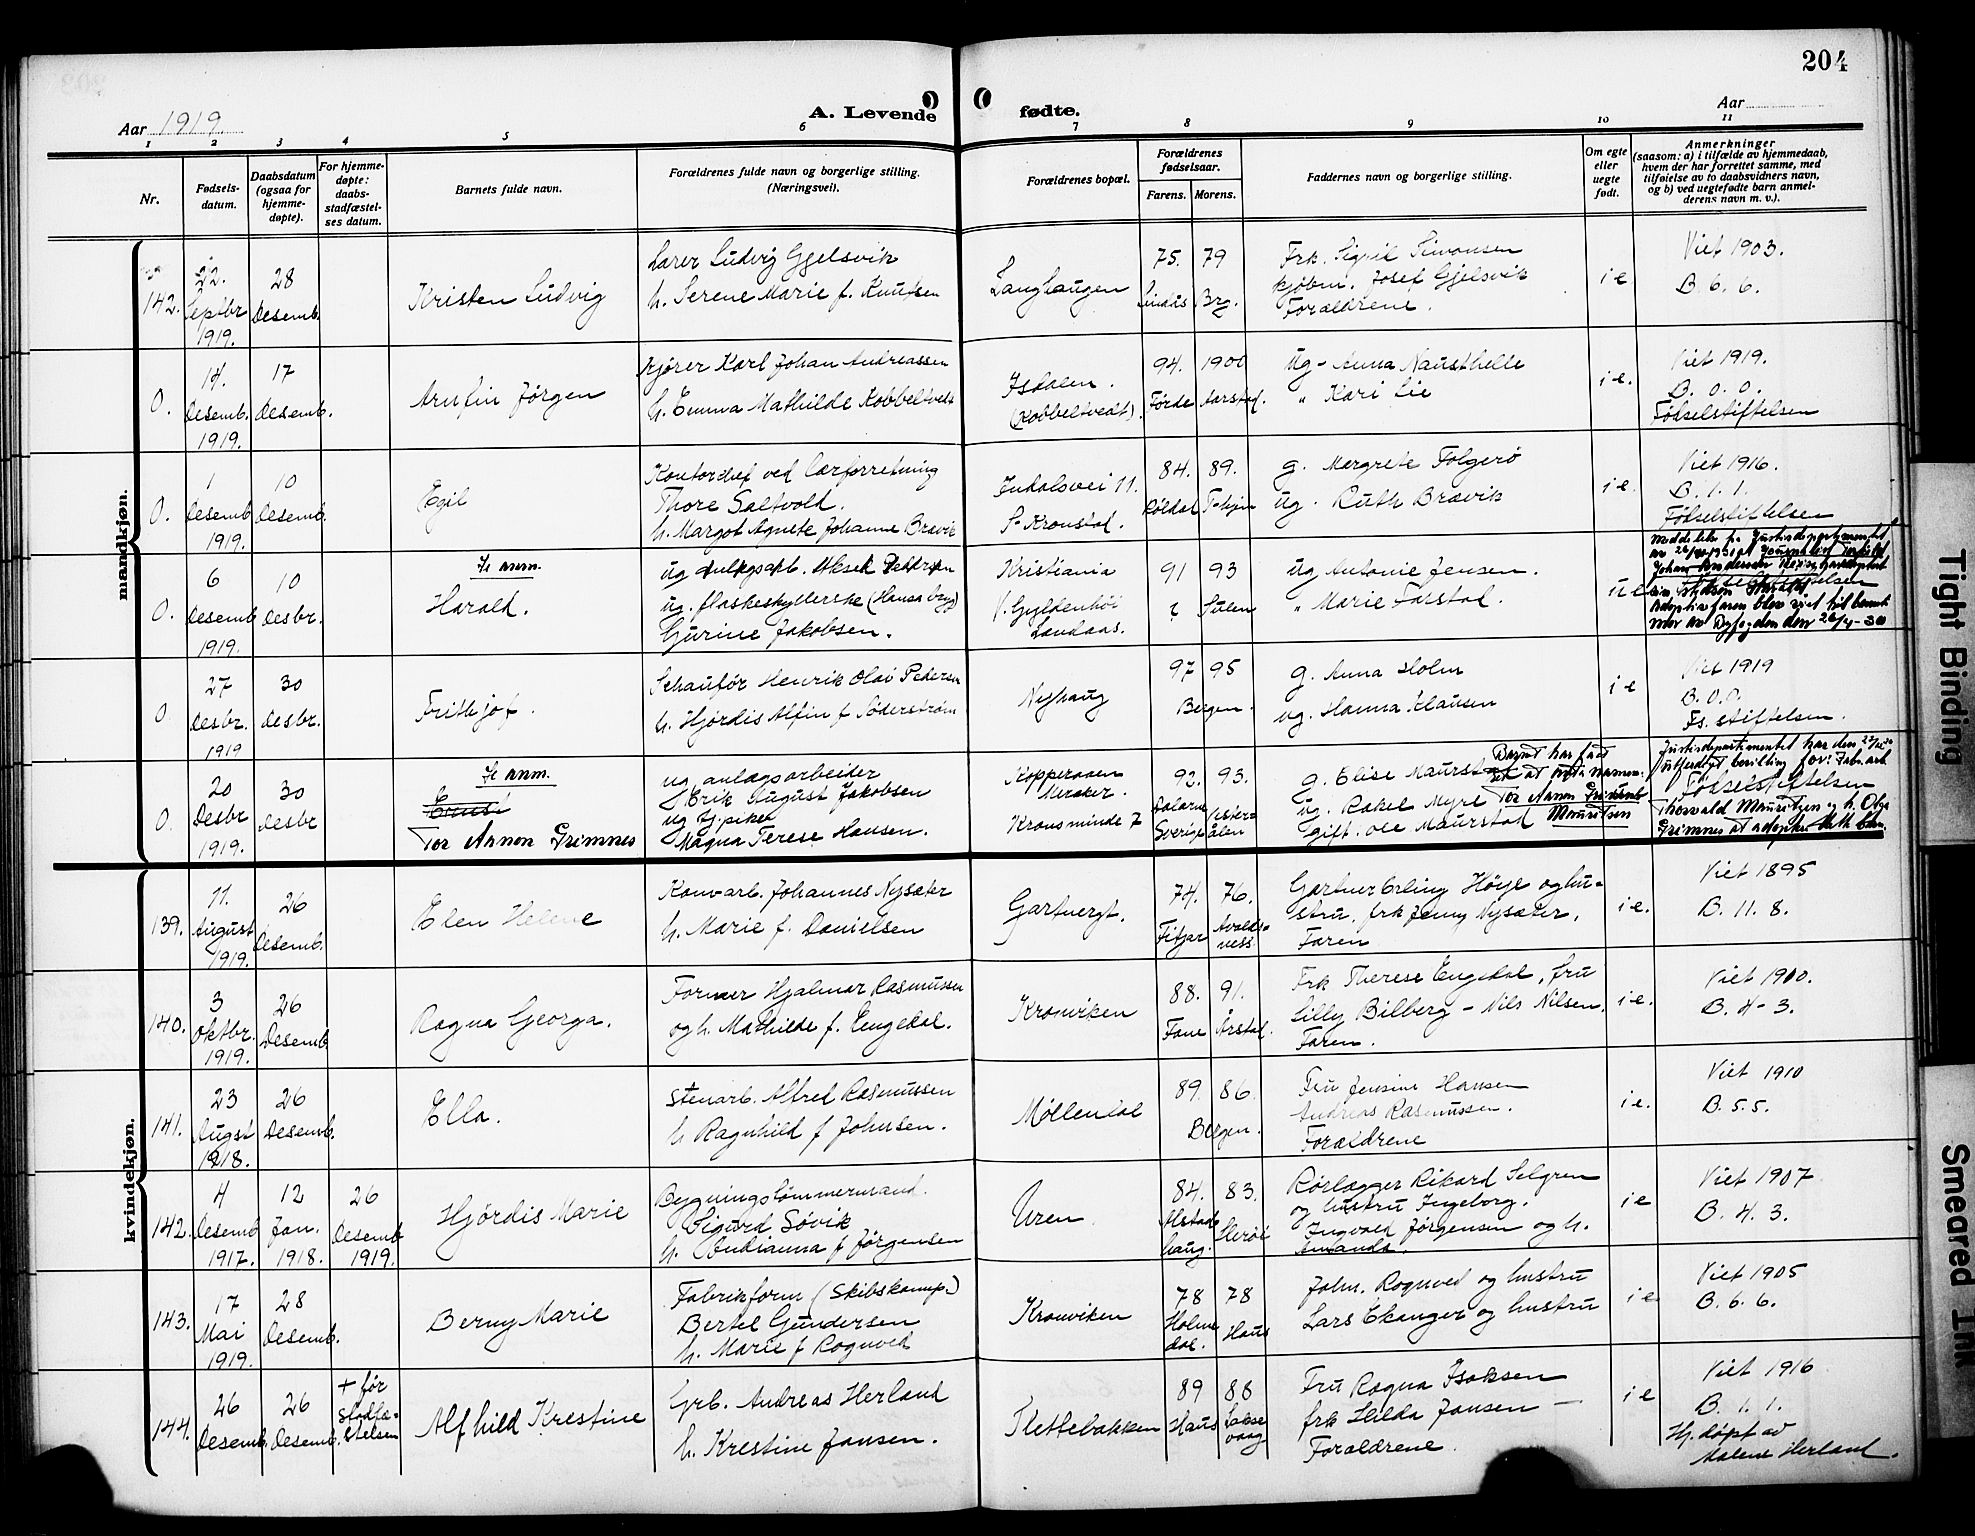 204
Aar 1919.
A. Levende fødte.
Aar
1 2 3 4 5 6 7 8 9 10 11
Nr.
Fødsels-
datum.
Daabsdatum
(ogsaa for
hjemme-
døpte).
For hjemme-
døpte:
daabs-
stadfæstel-
ses datum.
Barnets fulde navn.
Forældrenes fulde navn og borgerlige stilling.
(Næringsvei).
Forældrenes bopæl.
Forældrenes
fødselsaar.
Farens. Morens.
Faddernes navn og borgerlige stilling.
Om egte
eller
uegte
født.
Anmerkninger
(saasom: a) i tilfælde av hjemmedaab,
hvem der har forrettet samme, med
tilføielse av to daabsvidners navn,
og b) ved uegtefødte barn anmel-
derens navn m. v.).
mandkjøn.
142.
22.
Septbr
1919.
28
Desemb.
Kristen Ludvig
Lærer Ludvig Gjelsvik
h. Serene Marie f. Knutsen
Langhaugen
75. 79
Lindås Brg.
Frk. Sigril Simonsen
kjøbm. Josef Gjelsvik
Forældrene.
i e
Viet 1903.
B. 6. 6.
0.
14.
Desemb.
1919.
17
Desemb.
Arnfin Jørgen
Kjører Karl Johan Andreassen
h. Emma Mathilde Kobbeltvedt
Isdalen.
(Kobbeltvedt).
94. 1900
Førde Aarstad.
ug - Anna Nausthelle
" Kari Lie
i e.
Viet 1919.
B. 0. 0.
Fødselstiftelsen
0.
1
Desemb
1919.
10
Desemb.
Egil
Kontorchef ved lærforretning
Thore Saltvold.
h. Margot Agnete Johanne Brævik
Indalsvei 11.
S- Kronstad.
84. 89.
Røldal T-hjem
g. Margrete Folgerø
ug. Ruth Brævik
i e.
Viet 1916.
B. 1. 1.
Fødselstiftelsen
0.
6
Desemb
1919.
10
Desbr.
Se anm.
Harald.
ug anlægsarb. Aksel Pedersen
ug. flaskeskyllerske (Hansa bryg)
Gurine Jakobsen.
Kristiania
/. Gyldenhøi
Landaas.
91 93
? Sulen
ug Antonie Jensen.
" Marie Farstad.
u e
Adoptivfaren blev viet til barnets
mor av Byfogden den 26/4-30
0
27
Desbr.
1919
30
Desbr.
Frithjof.
Schaufør Henrik Olai Pedersen
h. Hjørdis Alfin f Søderstrøm
Nyhaug
97 95
Bergen.
g. Anna Holm
ug. Hanna Klausen
i e
Viet 1919
B. 0. 0.
Fs. stiftelsen.
0.
20
Desbr
1919.
30
Desbr
Se anm.
Tor Arnon Grimnes
ug anlægsarbeider
Erik August Jakobsen
ug tj.pike
Magna Terese Hansen.
Kopperaaen
Meraker.
Kronsminde 7
92. 93.
Dalarne
Sverige
Vester-
ålen
g. Elise Maurstad
ug. Rakel Myre
gift. Ole Maurstad
Barnet har fått
Tor Arnon Grimnes
Mauritsen
Justisdepartementet har den
utferdiget bevilling for:
Fødselstiftelsen
Thorvald Mauritsen og h. Olga
Grimnes at adoptere dette barn.
kvindekjøn.
139.
11.
August
1919.
26
Desemb.
Elen Helene
Komvarb. Johannes Nysæter
h. Marie f. Danielsen
Gartnergt.
74. 76.
Fitjar Avalds-
ness.
Gartner Erling Høye og hu-
stru, frk Jenny Nysæter,
Faren
i e.
Viet 1895
B. 11. 8.
140.
3
Oktbr.
1919.
26
Desemb.
Ragna Georga.
Former Hjalmar Rasmussen
og h. Mathilde f. Engedal.
Kronviken
88. 91.
Fane Årstad.
Frk Therese Engedal, fru
Lilly Bilberg - Nils Nilsen.
Faren.
i e.
Viet 1910.
B. 4-3.
141.
23
Augst
1918.
26
Desemb.
Ella.
Stenarb. Alfred Rasmussen
h Ragnhild f Johnsen.
Møllendal
89. 86.
Bergen.
Fru Jensine Hansen
Andreas Rasmussen.
Forældrene
i e.
Viet 1910
B. 5. 5.
142.
4
Desemb
1917.
12
Jan.
1918.
26
Desemb
1919.
Hjørdis Marie
Bygningstømmermand.
Sigurd Søvik
h. Andianna f Jørgensen
Uren.
84. 83.
Alstad-
haug. Herøi
Rørlægger Rikard Selgren
og hustru Ingeborg.
Ingvald Jørgensen og h.
Amanda.
i e
Viet 1907
B. 4. 3.
143.
17
Mai
1919.
28
Desemb.
Berny Marie
Fabrikform (Skibskomp.)
Bertel Gundersen
h. Marie f Rognved
Kronviken
78 78
Holme
dal. Haus
John. Rognved og hustru
Lars Ekanger og hustru
i e
Viet 1905
B. 6. 6.
144.
26
Desemb.
26
Desemb.
+ før
Stadfæ-
stelsen
Alfhild Krestine
Grb. Andreas Herland
h. Krestine Jansen.
Flettebakken
89 88
Haus Lakse
vaag
Fru Ragna Isaksen
frk Hilda Jansen -
Forældrene.
i e
Viet 1916
B. 1. 1.
Hj. døpt av
Malene Herland.
Tight Binding
Smeared Ink